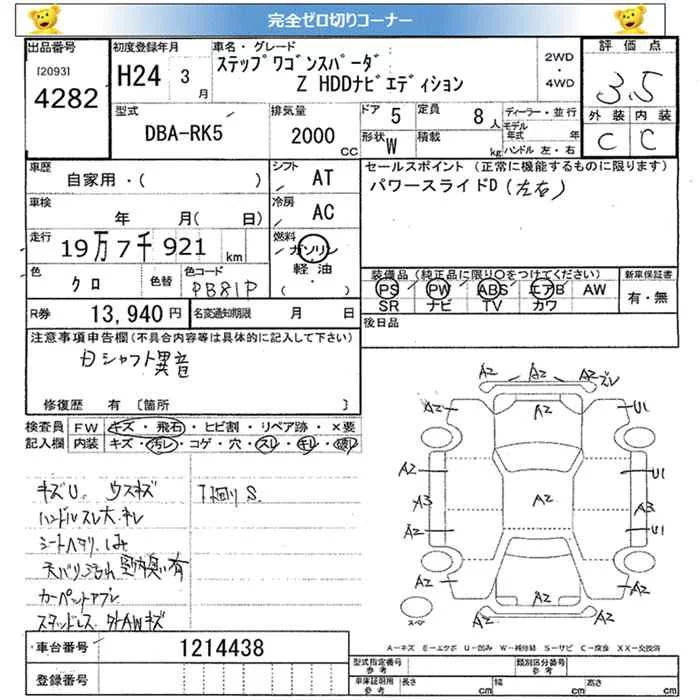 完全ゼロ切りコーナー
出品番号
[2093]
4282
初度登録年月
H24 3月
車名・グレード
ステップワゴンスパーダ
Z HDDナビエディション
2WD
・
4WD
評価点
3.5
外装 内装
C C
型式
DBA-RK5
排気量
2000 CC
ドア 5
定員 8人
形状 W
積載 kg
ディーラー・並行
モデル年式 年
ハンドル 左・右
車歴
自家用・( )
シフト AT
車検
年 月( 日)
冷房 AC
走行
19万7千921 km
燃料 ガソリン
軽油
( ・ )
色 クロ
色替
色コード
PB81P
セールスポイント (正常に機能するものに限ります)
パワースライドD (左右)
装備品 (純正品に限り○をつけてください)
PS PW ABS エアB AW
SR ナビ TV カワ
新車保証書
有・無
R券 13,940 円
名変通知期限 月 日
後日品
注意事項申告欄 (不具合内容等は具体的に記入して下さい)
シャフト異音
修復歴 有 〔箇所 〕
検査員記入欄
FW キズ・飛石・ヒビ割・リペア跡・×要
内装 キズ・汚レ・コゲ・穴・スレ・キレ・破レ
キズU. ウスキズ
下廻りS.
ハンドルスレ大.キレ
シートヘタリ.しみ
天バリ汚れ 室内臭い有
カーペットアブレ
スタッドレス 外AWキズ
A2 A2 A2 ズレ
A2 A2 U1
A2 U1
A3 A2 A3
A2 U1
A2 A2
A2 A2 A2
スペア
A-キズ E-エクボ U-凹み W-補修跡 S-サビ C-腐食 XX-交換済
車台番号 1214438
登録番号
型式指定番号
参考
類別区分番号
参考
車庫証明用
参考
長さ cm 幅 cm 高さ cm